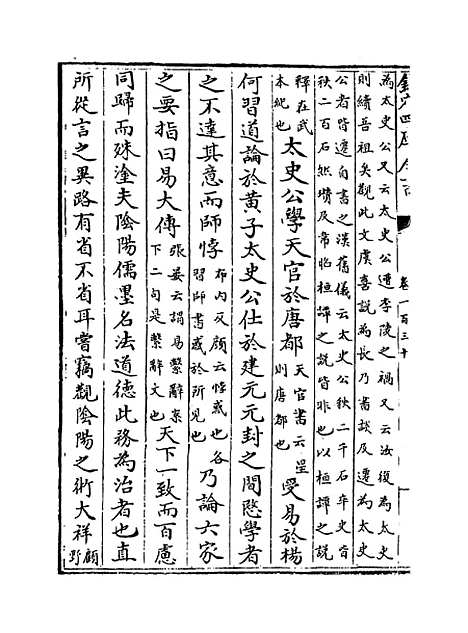 欽定四庫全書
卷一百三十
為太史公又云太史公遭李陵之禍又云汝復為太史
則續吾祖矣觀此文虞喜說為長乃書談及遷為太史
公者皆遷自書之漢舊儀云太史公秩二千石卒史皆
秩二百石然瓚及韋昭桓譚之說皆非也以桓譚之說
釋在武
本紀也
太史公學天官於唐都
天官書云星
則唐都也
受易於楊
何習道論於黃子太史公仕於建元元封之間愍學者
之不達其意而師悖
布內反顏云悖惑也各
習師書惑於所見也
乃論六家
之要指曰易大傳
張晏云謂易繫辭案
下二句是繫辭文也
天下一致而百慮
同歸而殊塗夫陰陽儒墨名法道德此務為治者也直
所從言之異路有省不省耳嘗竊觀陰陽之術大祥
顧
野